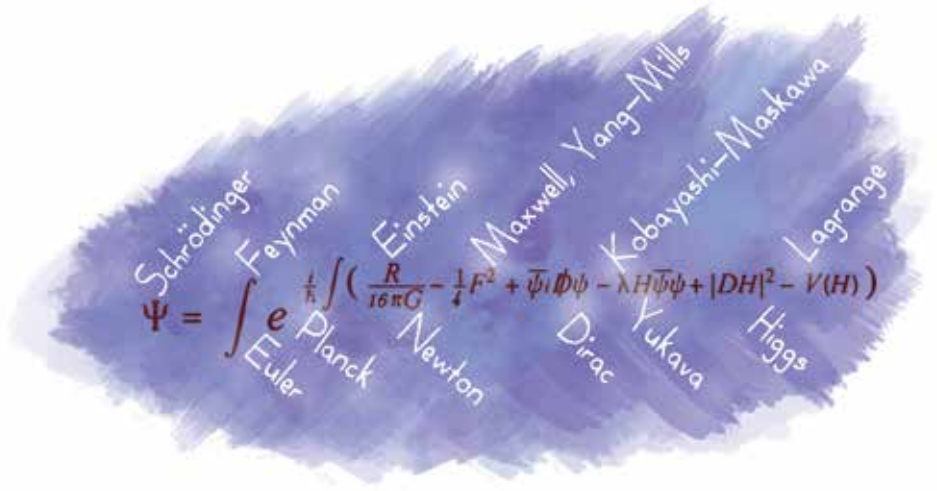 Schrödinger
Feynman
Einstein
Maxwell, Yang-Mills
Kobayashi-Maskawa
Lagrange
Ψ = ∫ e^{\frac{i}{ħ} ∫ ( \frac{R}{16πG} - \frac{1}{4}F² + ψ̅iD̸ψ - λHψ̅ψ + |DH|² - V(H) )}
Euler
Planck
Newton
Dirac
Yukava
Higgs